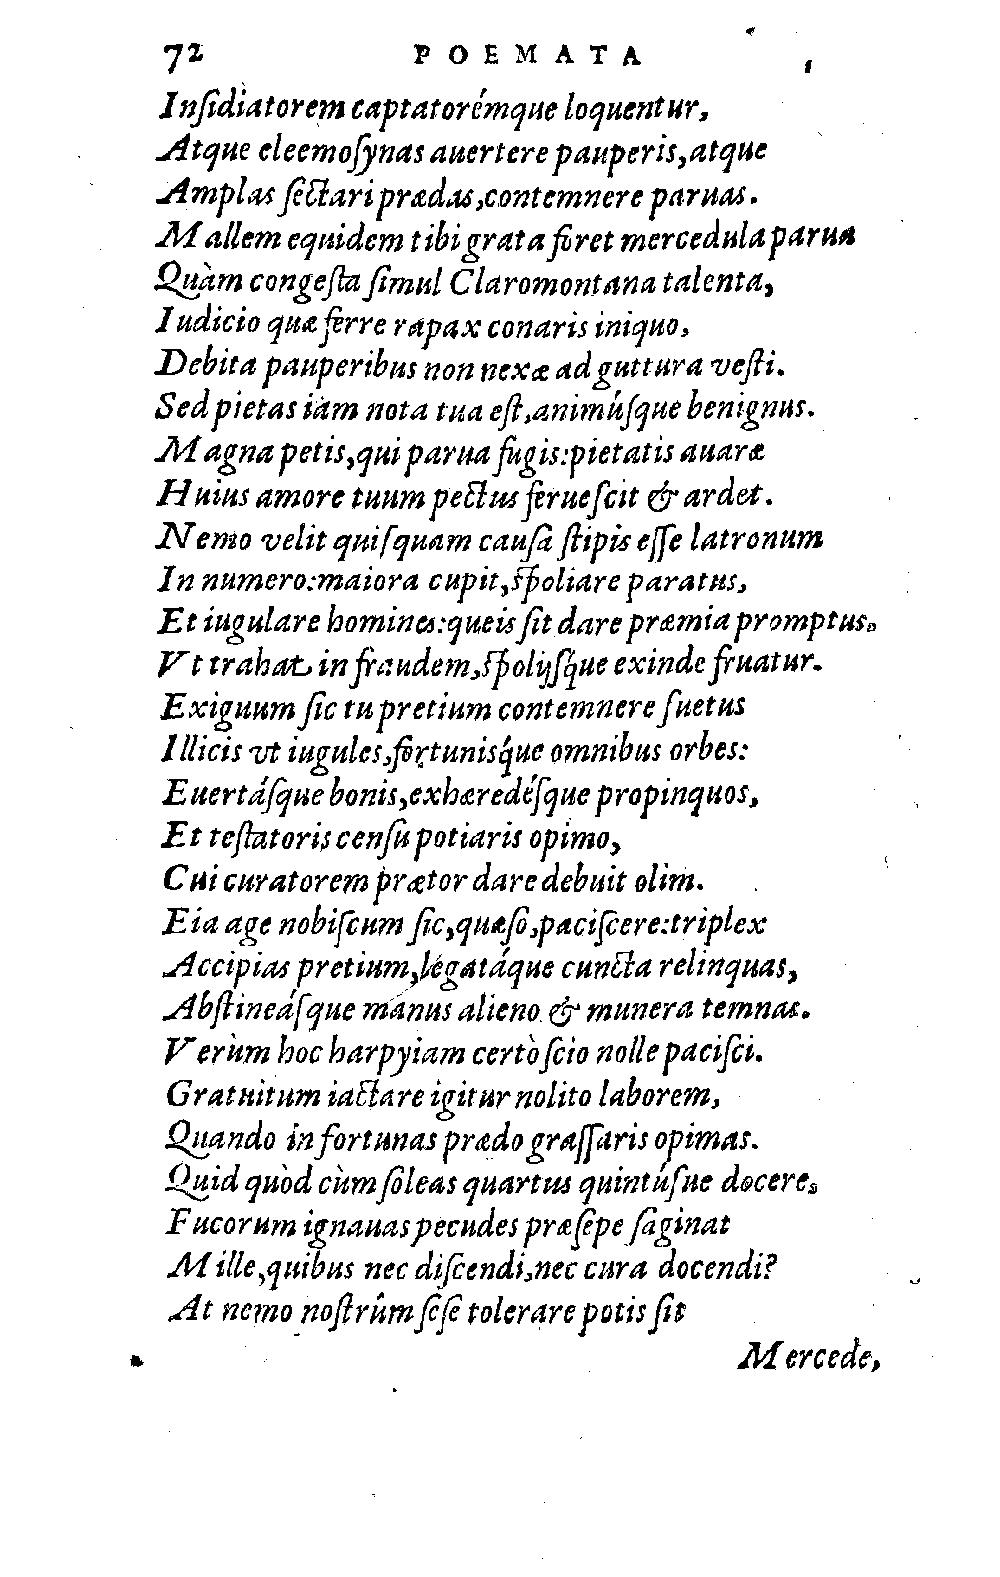 72 POEMATA
Inſidiatorem captatorémque loquentur,
Atque eleemoſynas auertere pauperis, atque
Amplas ſectari prædas, contemnere paruas.
Mallem equidem tibi grata foret mercedula parua
Quàm congeſta ſimul Claromontana talenta,
Iudicio quæ ferre rapax conaris iniquo,
Debita pauperibus non nexæ ad guttura veſti.
Sed pietas iàm nota tua eſt, animúſque benignus.
Magna petis, qui parua fugis: pietatis auaræ
Huius amore tuum pectus ferueſcit & ardet.
Nemo velit quiſquam cauſâ ſtipis eſſe latronum
In numero: maiora cupit, ſpoliare paratus,
Et iugulare homines: queis ſit dare præmia promptus.
Vt trahat in fraudem, ſpolijſq́ue exinde fruatur.
Exiguum ſic tu pretium contemnere ſuetus
Illicis vt iugules, fortunisq́ue omnibus orbes:
Euertáſque bonis, exhæredéſque propinquos,
Et teſtatoris cenſu potiaris opimo,
Cui curatorem prætor dare debuit olìm.
Eia age nobiſcum ſic, quæſo, paciſcere: triplex
Accipias pretium, legatáque cuncta relinquas,
Abſtineáſque manus alieno & munera temnas.
Verùm hoc harpyiam certò ſcio nolle paciſci.
Gratuitum iactare igitur nolito laborem,
Quando in fortunas prædo graſſaris opimas.
Quid quòd cùm ſoleas quartus quintúſue docere,
Fucorum ignauas pecudes præſepe ſaginat
Mille, quibus nec diſcendi, nec cura docendi?
At nemo noſtrûm ſeſe tolerare potis ſit
Mercede,